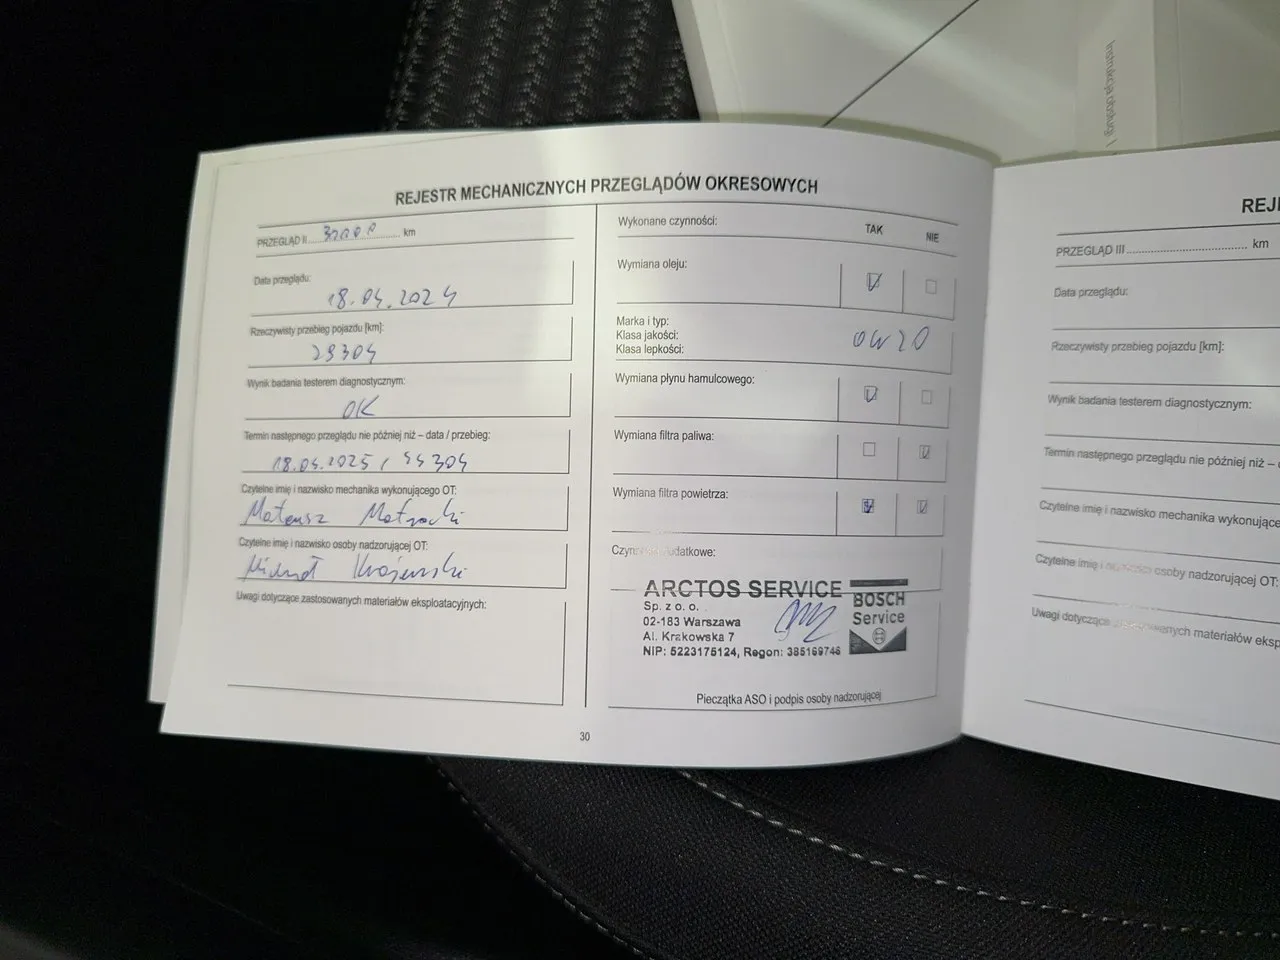 Instrukcja obsługi
REJESTR MECHANICZNYCH PRZEGLĄDÓW OKRESOWYCH
PRZEGLĄD II km
Data przeglądu:
18.04.2024
Rzeczywisty przebieg pojazdu [km]:
29304
Wynik badania testerem diagnostycznym:
OK
Termin następnego przeglądu nie później niż – data / przebieg:
18.04.2025 / 44304
Czytelne imię i nazwisko mechanika wykonującego OT:
Mateusz
Czytelne imię i nazwisko osoby nadzorującej OT:
Michał Krajewski
Uwagi dotyczące zastosowanych materiałów eksploatacyjnych:
Wykonane czynności: TAK NIE
Wymiana oleju:
Marka i typ:
Klasa jakości: 0W20
Klasa lepkości:
Wymiana płynu hamulcowego:
Wymiana filtra paliwa:
Wymiana filtra powietrza:
Czynności dodatkowe:
ARCTOS SERVICE
Sp. z o. o.
02-183 Warszawa
Al. Krakowska 7
NIP: 5223175124, Regon: 385169746
BOSCH
Service
Pieczątka ASO i podpis osoby nadzorującej
30
REJ
PRZEGLĄD III km
Data przeglądu:
Rzeczywisty przebieg pojazdu [km]:
Wynik badania testerem diagnostycznym:
Termin następnego przeglądu nie później niż –
Czytelne imię i nazwisko mechanika wykonujące
Czytelne imię i nazwisko osoby nadzorującej OT:
Uwagi dotyczące zastosowanych materiałów eksp